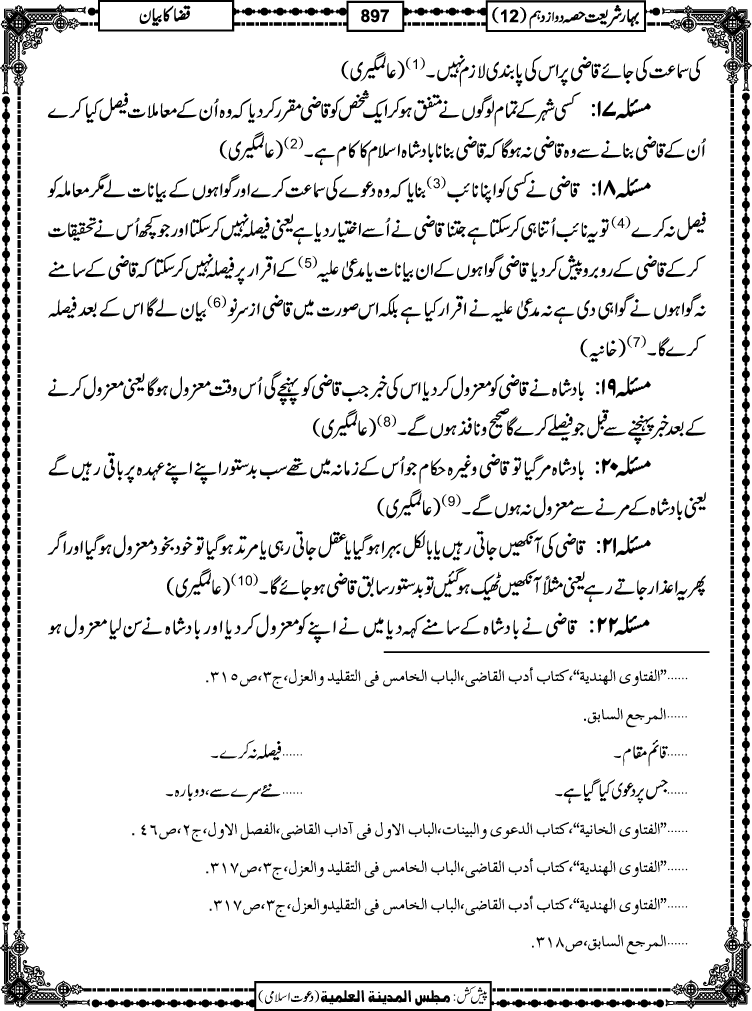 بہارِ شریعت حصہ دوازدہم (12)
897
قضا کا بیان
کی سماعت کی جائے قاضی پر اس کی پابندی لازم نہیں۔(1) (عالمگیری)
مسئلہ ۱۷: کسی شہر کے تمام لوگوں نے متفق ہو کر ایک شخص کو قاضی مقرر کر دیا کہ وہ اُن کے معاملات فیصل کیا کرے
اُن کے قاضی بنانے سے وہ قاضی نہ ہوگا کہ قاضی بنانا بادشاہ اسلام کا کام ہے۔(2) (عالمگیری)
مسئلہ ۱۸: قاضی نے کسی کو اپنا نائب(3) بنایا کہ وہ دعوے کی سماعت کرے اور گواہوں کے بیانات لے مگر معاملہ کو
فیصل نہ کرے(4) تو یہ نائب اُتنا ہی کر سکتا ہے جتنا قاضی نے اُسے اختیار دیا ہے یعنی فیصلہ نہیں کر سکتا اور جو کچھ اُس نے تحقیقات
کر کے قاضی کے روبرو پیش کر دیا قاضی گواہوں کے ان بیانات یا مدعیٰ علیہ(5) کے اقرار پر فیصلہ نہیں کر سکتا کہ قاضی کے سامنے
نہ گواہوں نے گواہی دی ہے نہ مدعیٰ علیہ نے اقرار کیا ہے بلکہ اس صورت میں قاضی از سرِ نو(6) بیان لے گا اس کے بعد فیصلہ
کرے گا۔(7) (خانیہ)
مسئلہ ۱۹: بادشاہ نے قاضی کو معزول کر دیا اس کی خبر جب قاضی کو پہنچے گی اُس وقت معزول ہوگا یعنی معزول کرنے
کے بعد خبر پہنچنے سے قبل جو فیصلے کرے گا صحیح و نافذ ہوں گے۔(8) (عالمگیری)
مسئلہ ۲۰: بادشاہ مر گیا تو قاضی وغیرہ حکام جو اُس کے زمانہ میں تھے سب بدستور اپنے اپنے عہدہ پر باقی رہیں گے
یعنی بادشاہ کے مرنے سے معزول نہ ہوں گے۔(9) (عالمگیری)
مسئلہ ۲۱: قاضی کی آنکھیں جاتی رہیں یا بالکل بہرا ہو گیا یا عقل جاتی رہی یا مرتد ہو گیا تو خود بخود معزول ہو گیا اور اگر
پھر یہ اعذار جاتے رہے یعنی مثلاً آنکھیں ٹھیک ہو گئیں تو بدستور سابق قاضی ہو جائے گا۔(10) (عالمگیری)
مسئلہ ۲۲: قاضی نے بادشاہ کے سامنے کہہ دیا میں نے اپنے کو معزول کر دیا اور بادشاہ نے سن لیا معزول ہو
......”الفتاوی الھندیة“،کتاب أدب القاضی،الباب الخامس فی التقلید والعزل،ج۳،ص۳۱۵.
......المرجع السابق.
......قائم مقام۔ ......فیصلہ نہ کرے۔
......جس پر دعویٰ کیا گیا ہے۔ ......نئے سرے سے،دوبارہ۔
......”الفتاوی الخانیة“،کتاب الدعوی والبینات،الباب الاول فی آداب القاضی،الفصل الاول،ج۲،ص٤٦ .
......”الفتاوی الھندیة“،کتاب أدب القاضی،الباب الخامس فی التقلید والعزل،ج۳،ص۳۱۷.
......”الفتاوی الھندیة“،کتاب أدب القاضی،الباب الخامس فی التقلیدوالعزل،ج۳،ص۳۱۷.
......المرجع السابق،ص۳۱۸.
پیش کش: مجلس المدینة العلمیة (دعوتِ اسلامی)